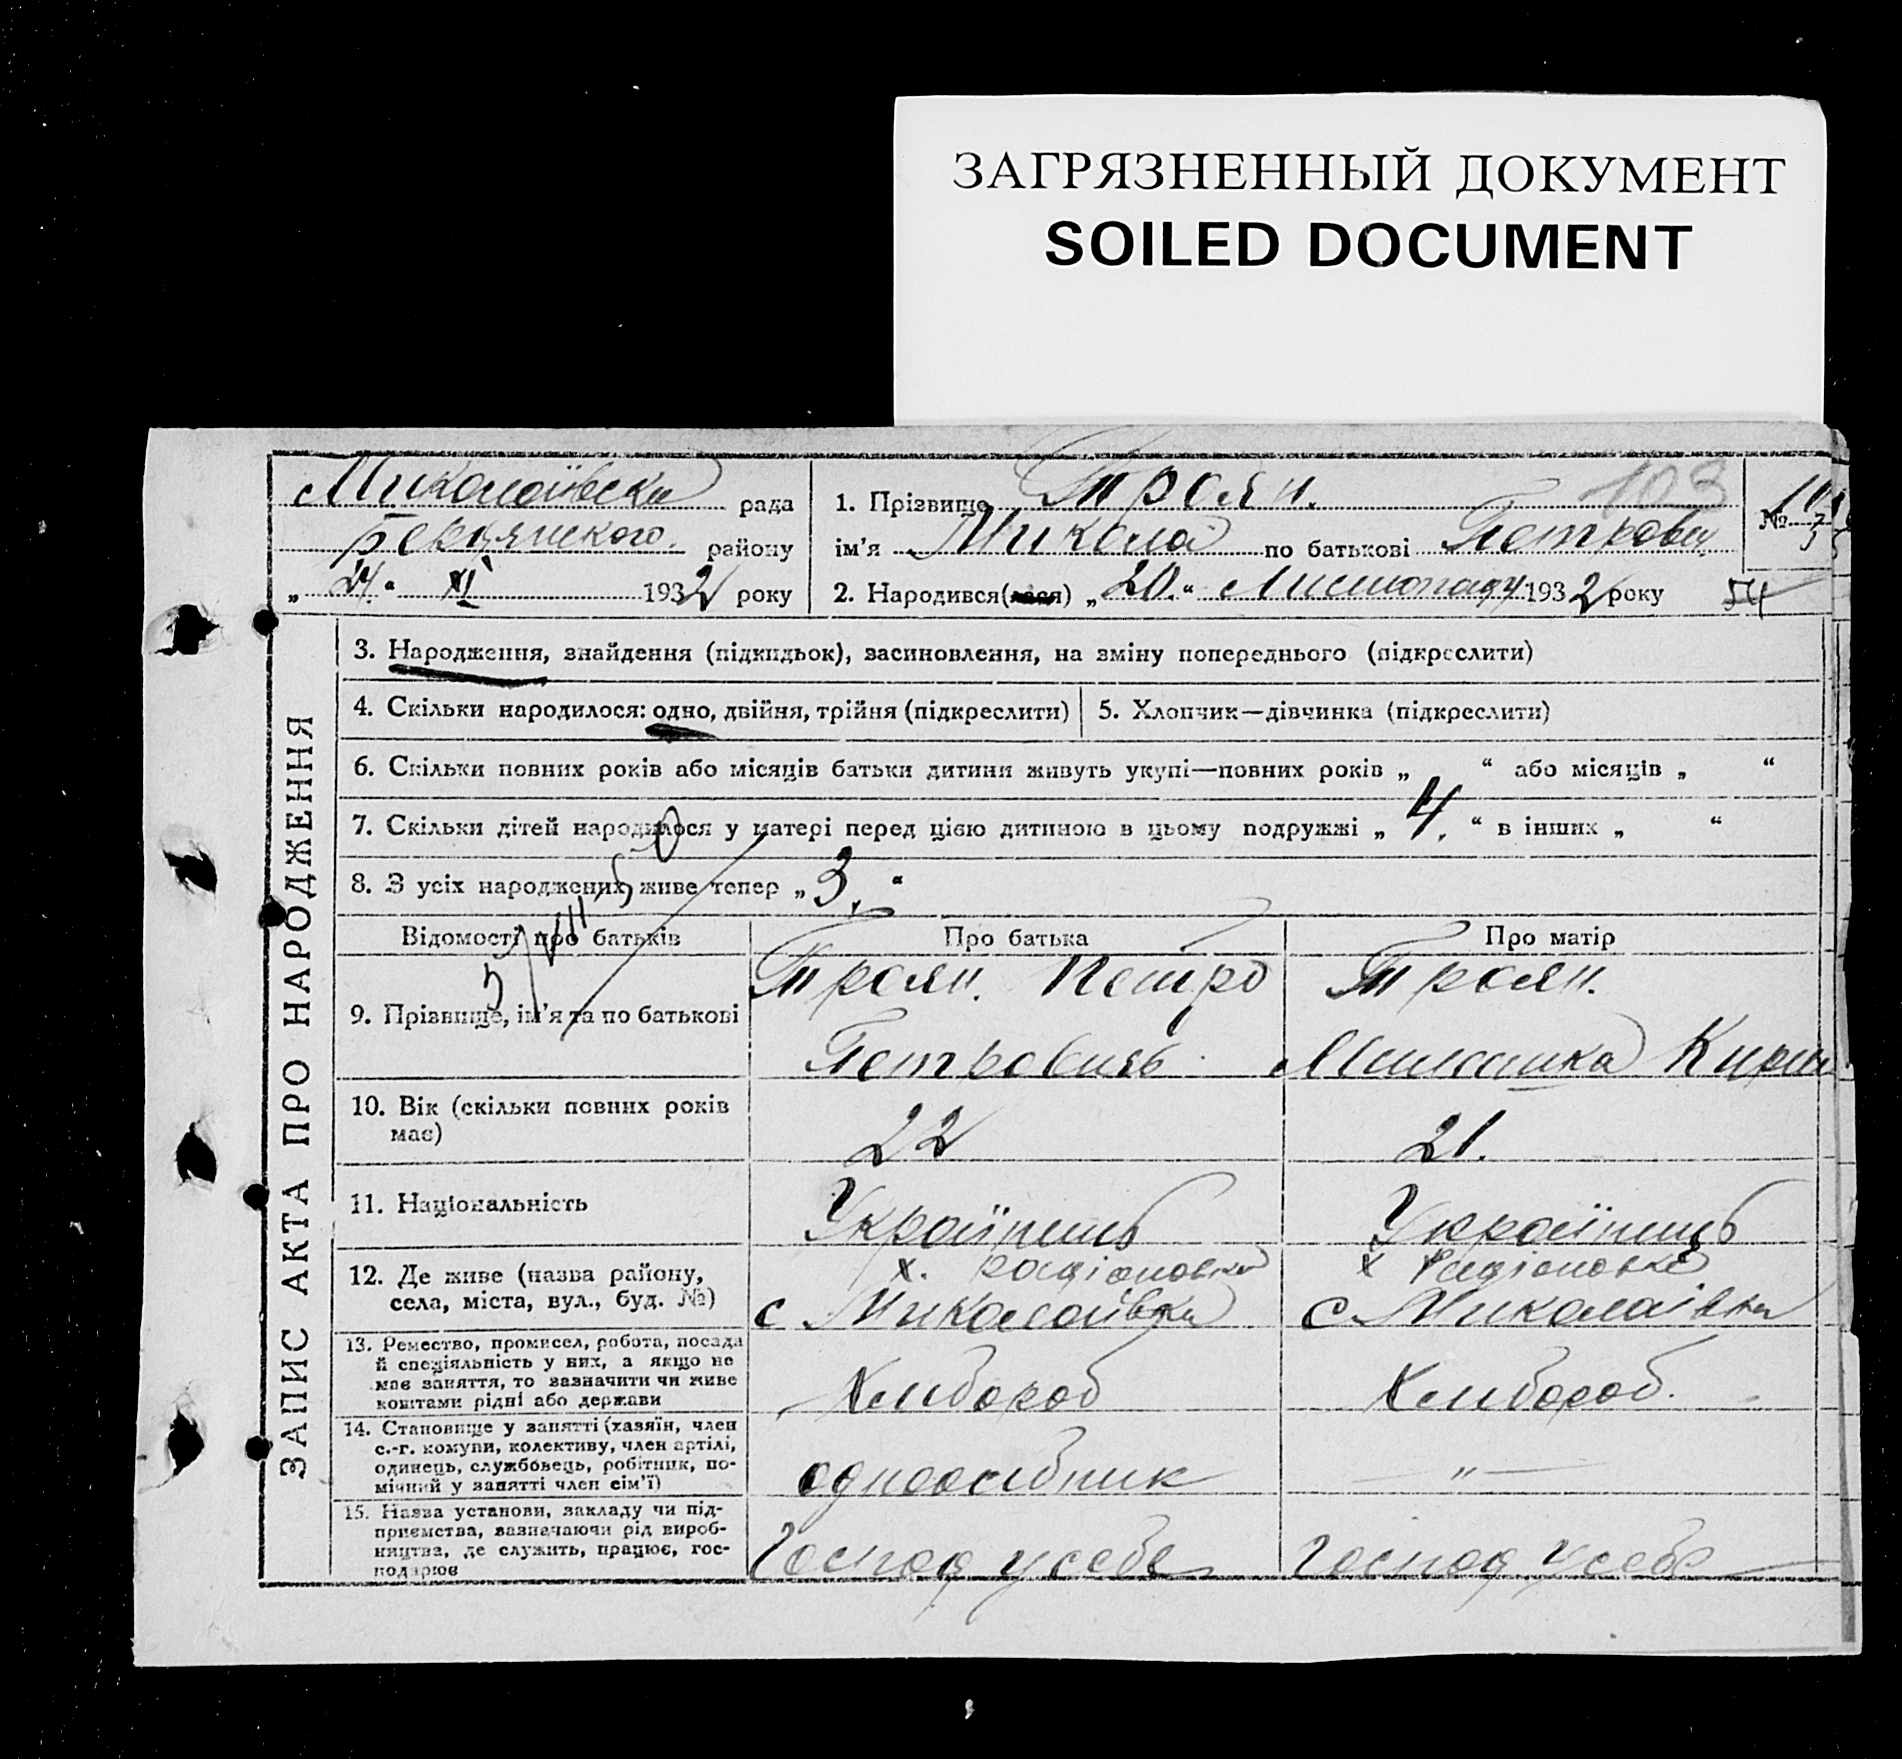 ЗАГРЯЗНЕННЫЙ ДОКУМЕНТ
SOILED DOCUMENT
Миколаївська рада
Бердянского району
„24“ XI 1932 року
1. Прізвище Троян. 103
ім’я Микола по батькові Петрович
2. Народився(лася) „20.“ Листопаду 1932 року
№
54
ЗАПИС АКТА ПРО НАРОДЖЕННЯ
3. Народження, знайдення (підкидьок), засиновлення, на зміну попереднього (підкреслити)
4. Скільки народилося: одно, двійня, трійня (підкреслити)
5. Хлопчик—дівчинка (підкреслити)
6. Скільки повних років або місяців батьки дитини живуть укупі—повних років „ “ або місяців „ “
7. Скільки дітей народилося у матері перед цією дитиною в цьому подружжі „4.“ в інших „ “
8. З усіх народжених живе тепер „3.“
Відомості про батьків Про батька Про матір
9. Прізвище, ім’я та по батькові
Троян. Петро
Петровичь
Троян.
10. Вік (скільки повних років
має)
22 21.
11. Національність
Українець Українець
12. Де живе (назва району,
села, міста, вул., буд. №)
х. Радіоновка
с Миколаївка
х Радіоновка
с Миколаївка
13. Ремество, промисел, робота, посада
й спеціяльність у них, а якщо не
має заняття, то зазначити чи живе
коштами рідні або держави
Хлибороб Хлибороб.
14. Становище у занятті (хазяїн, член
с.-г. комуни, колективу, член артілі,
одинець, службовець, робітник, по-
мічний у занятті член сім’ї)
одноосібник — „ —
15. Назва установи, закладу чи під-
приємства, зазначаючи рід вироб-
ництва, де служить, працює, гос-
подарює
Господ у себе Господ у себе